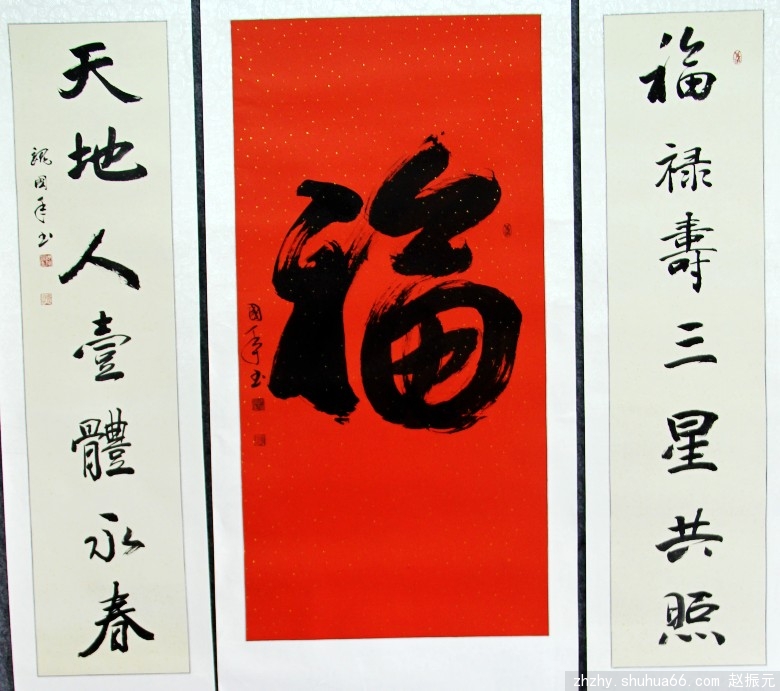 福禄壽三星共照
福
國年书
天地人壹體永春
魏國年书
zhzhy.shuhua66.com 赵振元